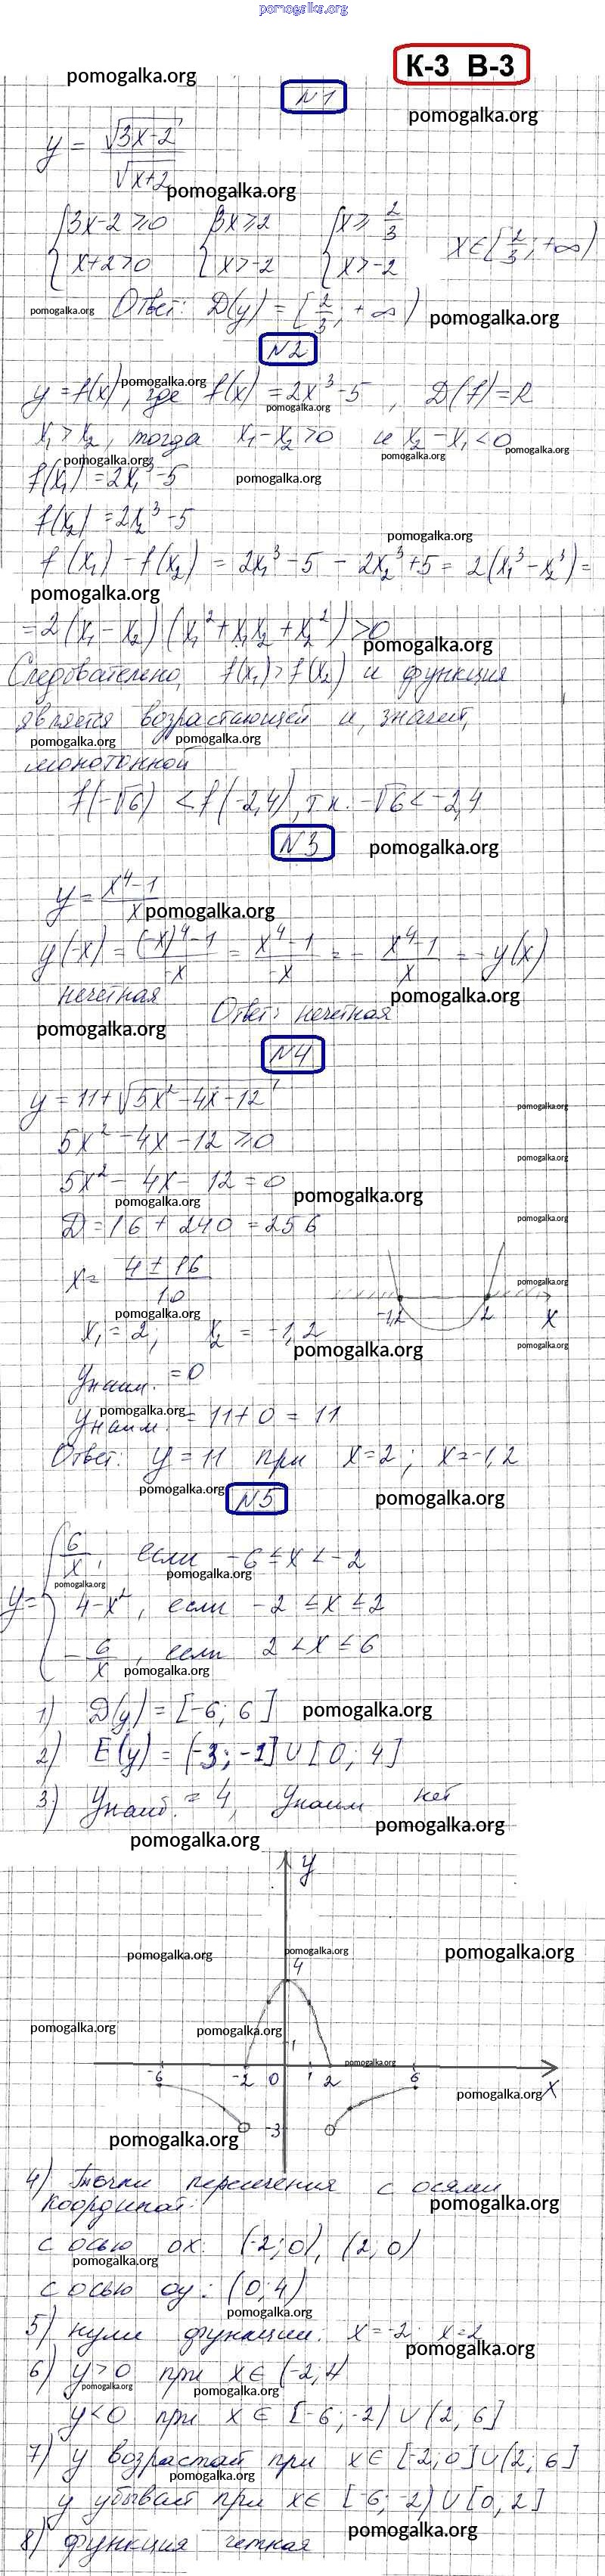 pomogalka.org
К-3 В-3
pomogalka.org
N1
pomogalka.org
y = √(3x-2) / √(x+2)
pomogalka.org
{ 3x-2 ≥ 0 { 3x ≥ 2 { x ≥ 2/3 x ∈ [2/3; +∞)
{ x+2 > 0 { x > -2 { x > -2
pomogalka.org Ответ: D(y) = [2/3; +∞) pomogalka.org
N2
pomogalka.org
y = f(x), где f(x) = 2x³-5, D(f) = R
pomogalka.org
x₁ > x₂, тогда x₁-x₂ > 0 и x₂-x₁ < 0
pomogalka.org pomogalka.org pomogalka.org
f(x₁) = 2x₁³-5 pomogalka.org
f(x₂) = 2x₂³-5
pomogalka.org
f(x₁) - f(x₂) = 2x₁³-5 - 2x₂³+5 = 2(x₁³-x₂³) =
pomogalka.org
= 2(x₁-x₂)(x₁²+x₁x₂+x₂²) > 0
pomogalka.org
Следовательно, f(x₁) > f(x₂) и функция
является возрастающей и, значит,
pomogalka.org pomogalka.org
монотонной
f(-√6) < f(-2,4), т.к. -√6 < -2,4
N3 pomogalka.org
y = (x⁴-1)/x
pomogalka.org
y(-x) = ((-x)⁴-1)/-x = (x⁴-1)/-x = - (x⁴-1)/x = -y(x)
нечетная pomogalka.org
Ответ: нечетная
pomogalka.org
N4
y = 11+√(5x²-4x-12)
pomogalka.org
5x²-4x-12 ≥ 0
pomogalka.org
5x²-4x-12 = 0
pomogalka.org pomogalka.org
D = 16+240 = 256
pomogalka.org
x = (4±16)/10
pomogalka.org
-1,2 2 x
pomogalka.org
x₁ = 2; x₂ = -1,2
pomogalka.org pomogalka.org
yнаим. = 0
pomogalka.org
yнаим. = 11+0 = 11
Ответ: y = 11 при x=2; x=-1,2
pomogalka.org N5 pomogalka.org
6/x, если -6 ≤ x < -2
pomogalka.org pomogalka.org
y = { 4-x², если -2 ≤ x ≤ 2
-6/x, если 2 < x ≤ 6
pomogalka.org
1) D(y) = [-6; 6] pomogalka.org
2) E(y) = (-3; -1] ∪ [0; 4]
3) yнаиб. = 4, yнаим нет
pomogalka.org
pomogalka.org
y
pomogalka.org pomogalka.org pomogalka.org
4
pomogalka.org pomogalka.org
1
pomogalka.org
-6 -2 0 1 2 6 x
pomogalka.org
-3
pomogalka.org
4) Точки пересечения с осями
координат: pomogalka.org
с осью ox: (-2; 0), (2; 0)
pomogalka.org
с осью oy: (0; 4)
pomogalka.org
5) нули функции: x=-2 x=2
pomogalka.org
6) y > 0 при x ∈ (-2, 4)
pomogalka.org pomogalka.org
y < 0 при x ∈ [-6; -2) ∪ (2, 6]
7) y возрастает при x ∈ [-2; 0] ∪ (2; 6]
pomogalka.org
y убывает при x ∈ [-6; -2) ∪ [0, 2]
pomogalka.org
8) функция четная